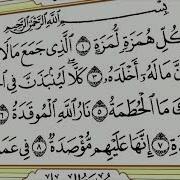 بِسْمِ ٱللَّهِ ٱلرَّحْمَٰنِ ٱلرَّحِيمِ
كُلِّ هُمَزَةٍ لُّمَزَةٍ ١ ٱلَّذِى جَمَعَ مَالًا
نَّ مَالَهُۥٓ أَخْلَدَهُۥ ٣ كَلَّا لَيُنۢبَذَنَّ فِى
كَ مَا ٱلْحُطَمَةُ ٥ نَارُ ٱللَّهِ ٱلْمُوقَدَةُ ٦
٧ إِنَّهَا عَلَيْهِم مُّؤْصَدَةٌ ٨ فِى عَمَ